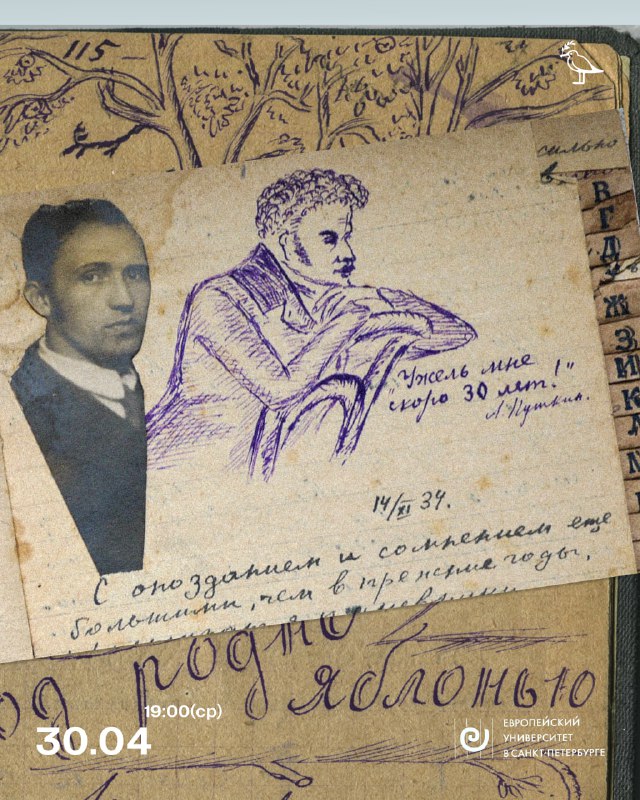 115-
сильно
в
В
Г
Д
Ж
З
И
К
Л
М
"Ужель мне
скоро 30 лет!"
А. Пушкин.
14/XI 34.
С опозданием и сомнением еще
большими, чем в прежние годы,
од родно
яблонью
19:00(ср)
30.04
ЕВРОПЕЙСКИЙ
УНИВЕРСИТЕТ
В САНКТ-ПЕТЕРБУРГЕ